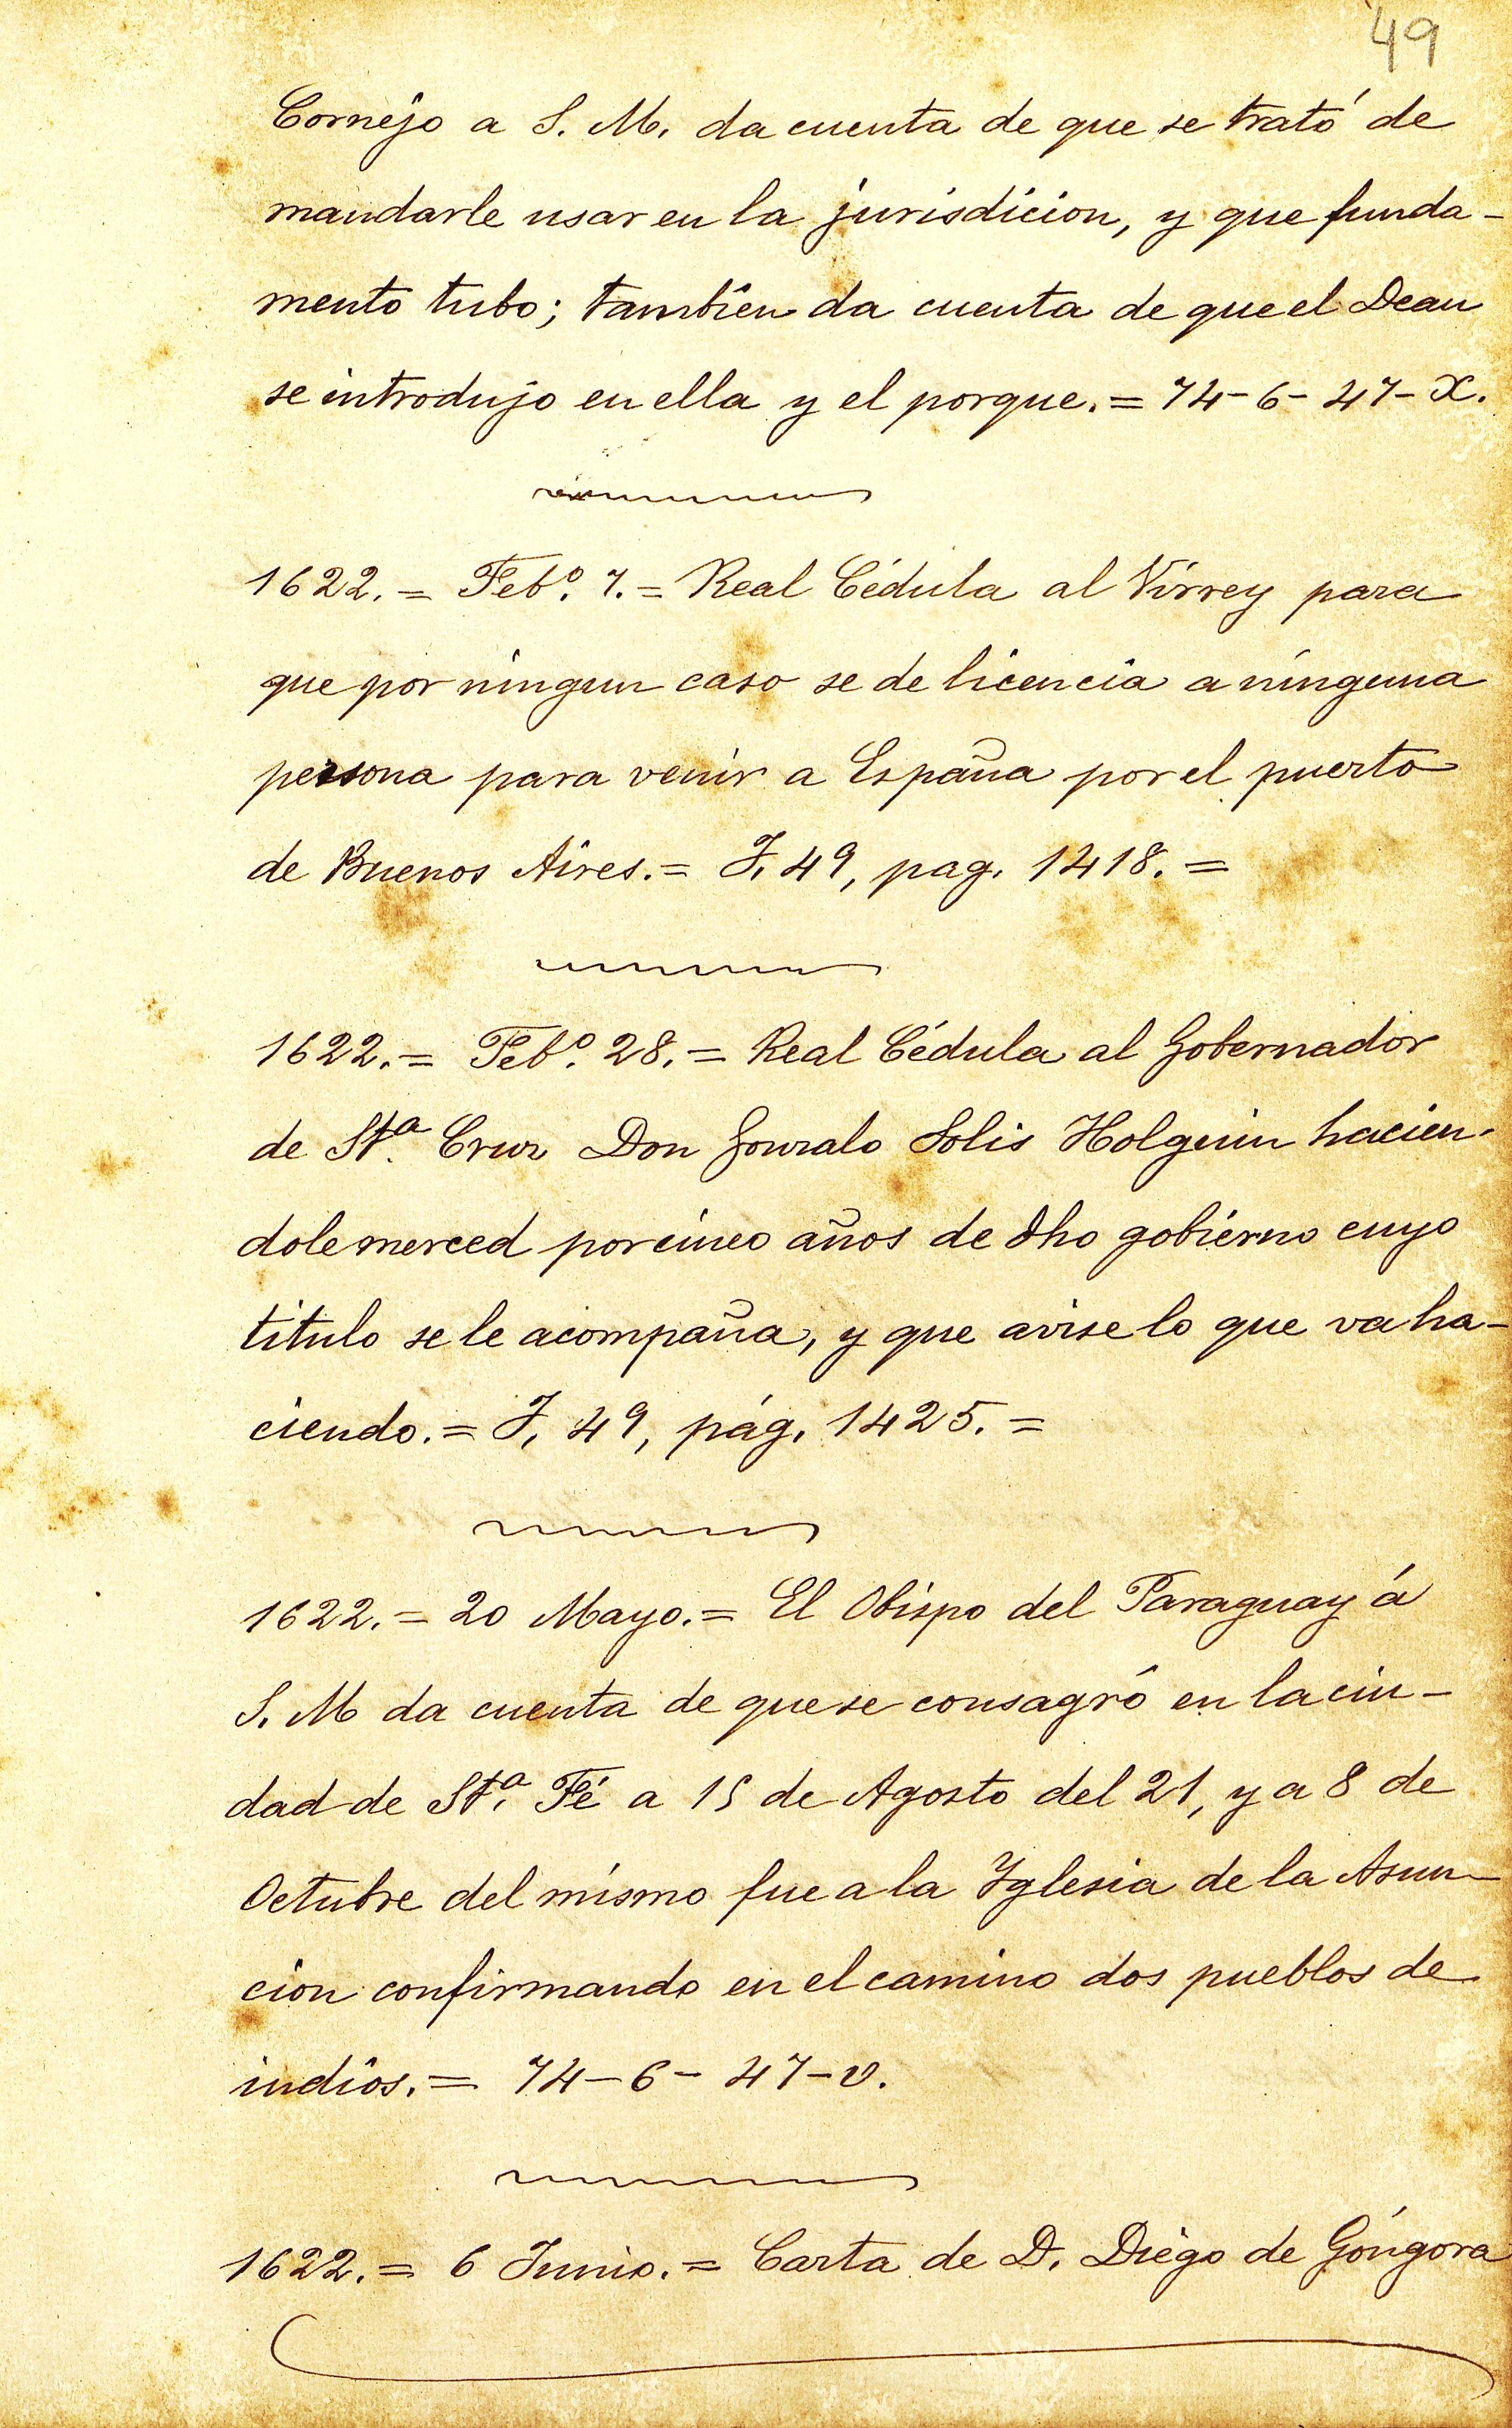 49
Cornejo a S. M. da cuenta de que se trató de
mandarle usar en la jurisdicion, y que funda-
mento tubo; tambien da cuenta de que el Dean
se introdujo en ella y el porque. = 74-6-47-X.
1622. = Febº. 7. = Real Cédula al Virrey para
que por ningun caso se de licencia a ninguna
persona para venir a España por el puerto
de Buenos Aires. = J. 49, pag. 1418. =
1622. = Febº. 28. = Real Cédula al Gobernador
de Stª. Cruz Don Gonzalo Solis Holguin hacien-
dole merced por cinco años de dho gobierno cuyo
titulo se le acompaña, y que avise lo que va ha-
ciendo. = J. 49, pág. 1425. =
1622. = 20 Mayo. = El Obispo del Paraguay á
S. M da cuenta de que se consagró en la ciu-
dad de Stª. Fé a 15 de Agosto del 21, y a 8 de
Octubre del mismo fue a la Yglesia de la Asun-
cion confirmando en el camino dos pueblos de
indios. = 74-6-47-v.
1622. = 6 Junio. = Carta de D. Diego de Góngora